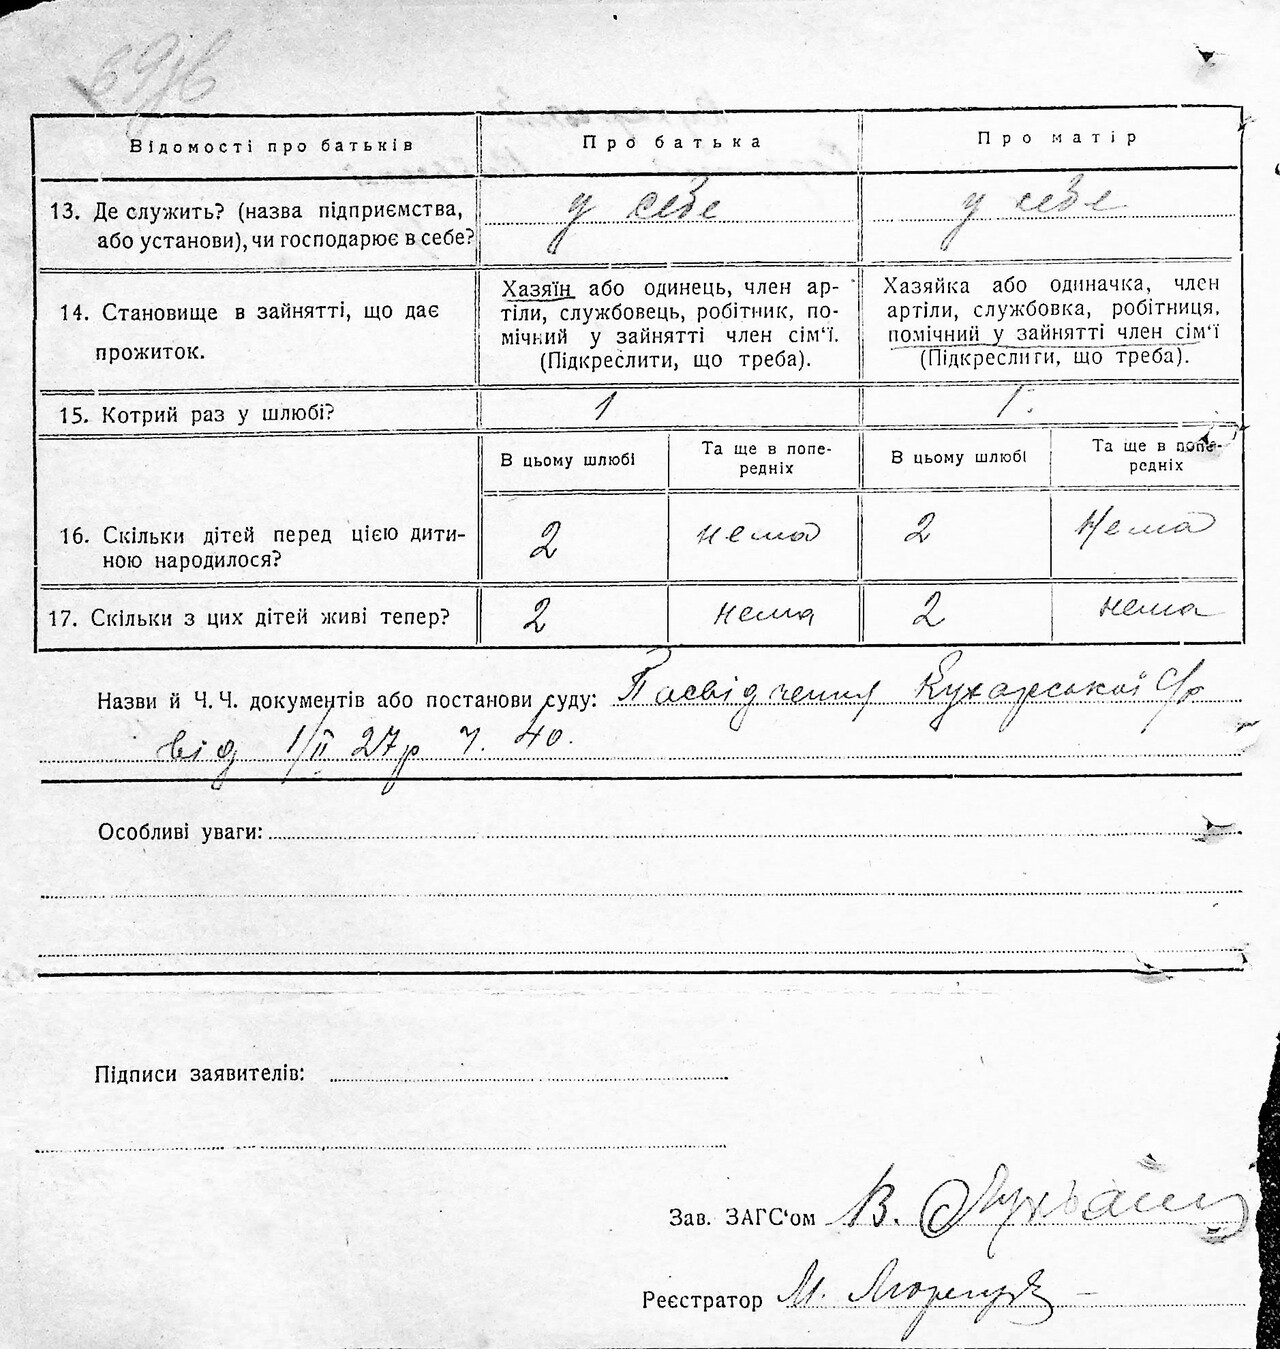 Відомості про батьків
Про батька
Про матір
13. Де служить? (назва підприємства,
або установи), чи господарює в себе?
у себе
у себе
14. Становище в зайнятті, що дає
прожиток.
Хазяїн або одинець, член ар-
тіли, службовець, робітник, по-
мічний у зайнятті член сім‘ї.
(Підкреслити, що треба).
Хазяйка або одиначка, член
артіли, службовка, робітниця,
помічний у зайнятті член сім‘ї
(Підкреслити, що треба).
15. Котрий раз у шлюбі?
1
1.
В цьому шлюбі
Та ще в попе-
редніх
В цьому шлюбі
Та ще в попе-
редніх
16. Скільки дітей перед цією дити-
ною народилося?
2
нема
2
Нема
17. Скільки з цих дітей живі тепер?
2
нема
2
нема
Назви й Ч. Ч. документів або постанови суду: Посвідчення Кухарської с/р
від 1/II 27р ч. 40.
Особливі уваги:
Підписи заявителів:
Зав. ЗАГС‘ом В.
Реєстратор М.